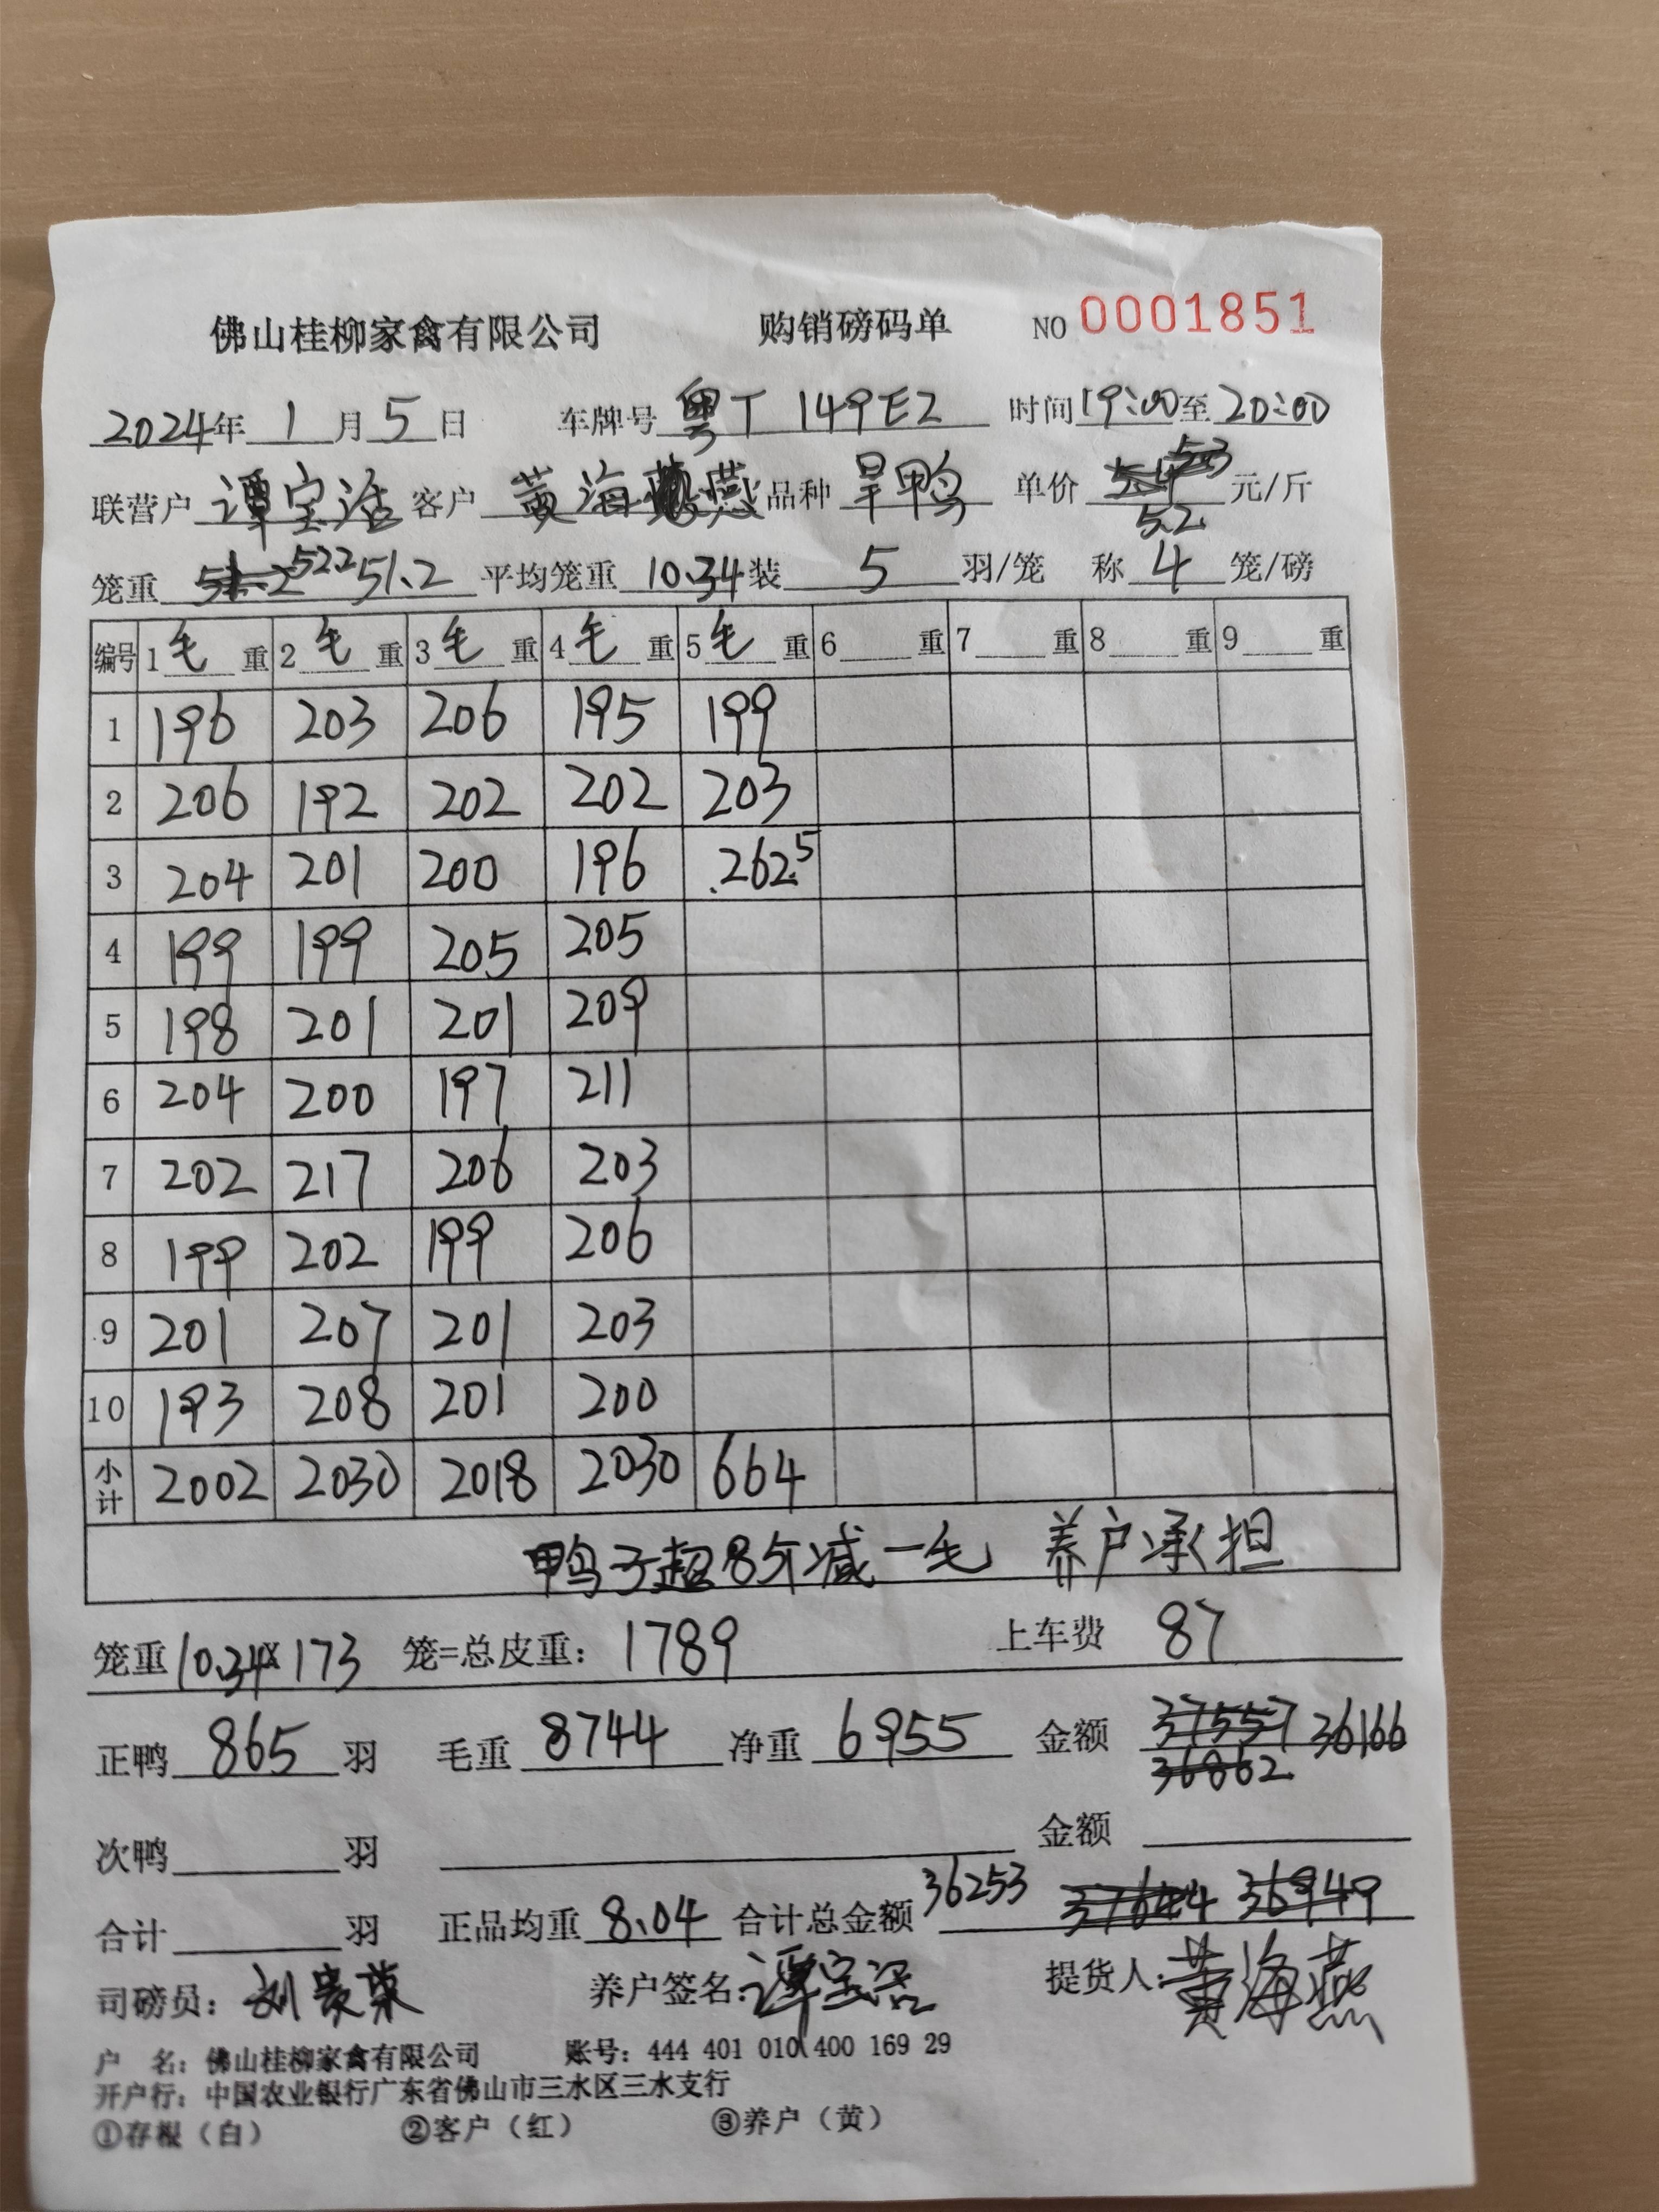 佛山桂柳家禽有限公司 购销磅码单 NO 0001851
2024年 1 月 5 日 车牌号 粤T 149E2 时间 19:00 至 20:00
联营户 谭宝浩 客户 黄海燕 品种 旱鸭 单价 5.4 5.3 元/斤
5.2
笼重 51.2 52.2 51.2 平均笼重 10.34 装 5 羽/笼 称 4 笼/磅
编号 1 毛 重 2 毛 重 3 毛 重 4 毛 重 5 毛 重 6 重 7 重 8 重 9 重
1 196 203 206 195 199
2 206 192 202 202 203
3 204 201 200 196 262.5
4 199 199 205 205
5 198 201 201 209
6 204 200 197 211
7 202 217 206 203
8 199 202 199 206
9 201 207 201 203
10 193 208 201 200
小计 2002 2030 2018 2030 664
鸭子超8斤减一毛 养户承担
笼重 10.34x173 笼=总皮重: 1789 上车费 87
正鸭 865 羽 毛重 8744 净重 6955 金额 37557 36166
36862
次鸭 羽 金额
合计 羽 正品均重 8.04 合计总金额 36253 37644 36949
司磅员: 刘 荣 养户签名: 谭宝浩 提货人: 黄海燕
户 名: 佛山桂柳家禽有限公司 账号: 444 401 010 400 169 29
开户行: 中国农业银行广东省佛山市三水区三水支行
①存根（白） ②客户（红） ③养户（黄）